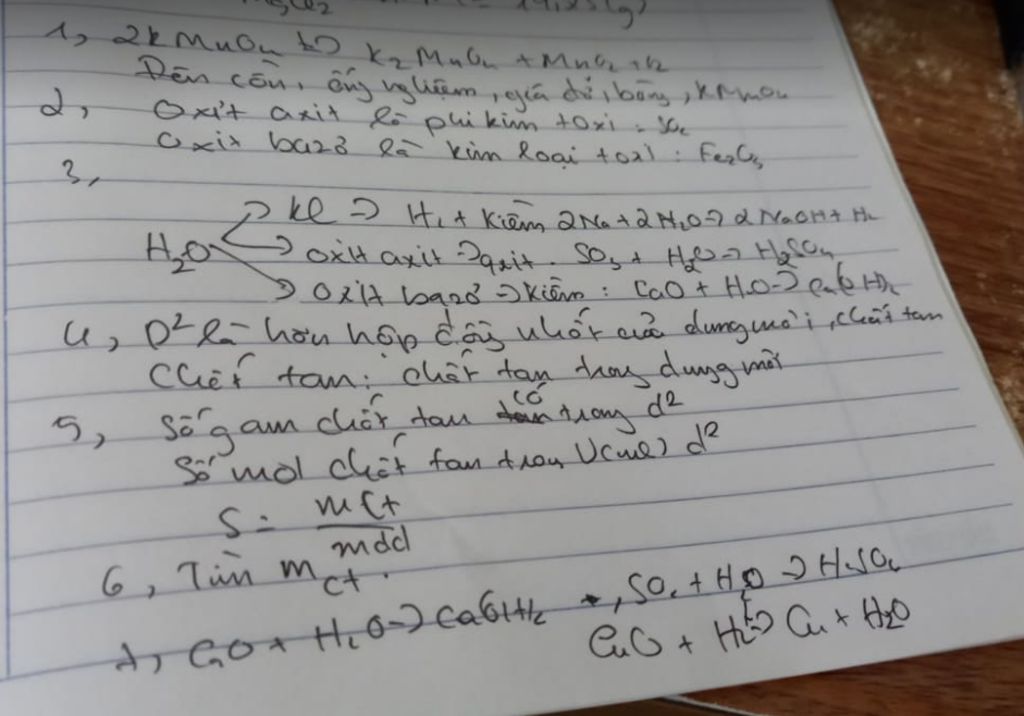 MgCl2
1, 2KMnO4 t0-> K2MnO4 + MnO2 + O2
Đèn cồn, ống nghiệm, giá đỡ, bông, KMnO4
2, Oxit axit là phi kim + oxi : SO2
Oxit bazơ là kim loại + oxi : Fe2O3
3,
-> kl => H2 + Kiềm 2Na + 2H2O => 2NaOH + H2
H2O -> oxit axit => axit. SO3 + H2O -> H2SO4
-> Oxit bazơ -> Kiềm : CaO + H2O -> Ca(OH)2
4, D2 là hỗn hợp đồng nhất của dung môi, chất tan
Chất tan: chất tan trong dung môi
5, Số gam chất tan có trong d2
Số mol chất tan trong V(ml) d2
S = mct / mdd
6, Tìm mct.
CaO + H2O -> Ca(OH)2 +, SO2 + H2O -> H2SO4
CuO + H2 t-> Cu + H2O